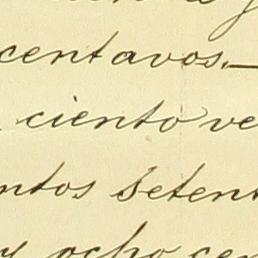 centavos.—
ciento ve
ntos setent
y ocho cen